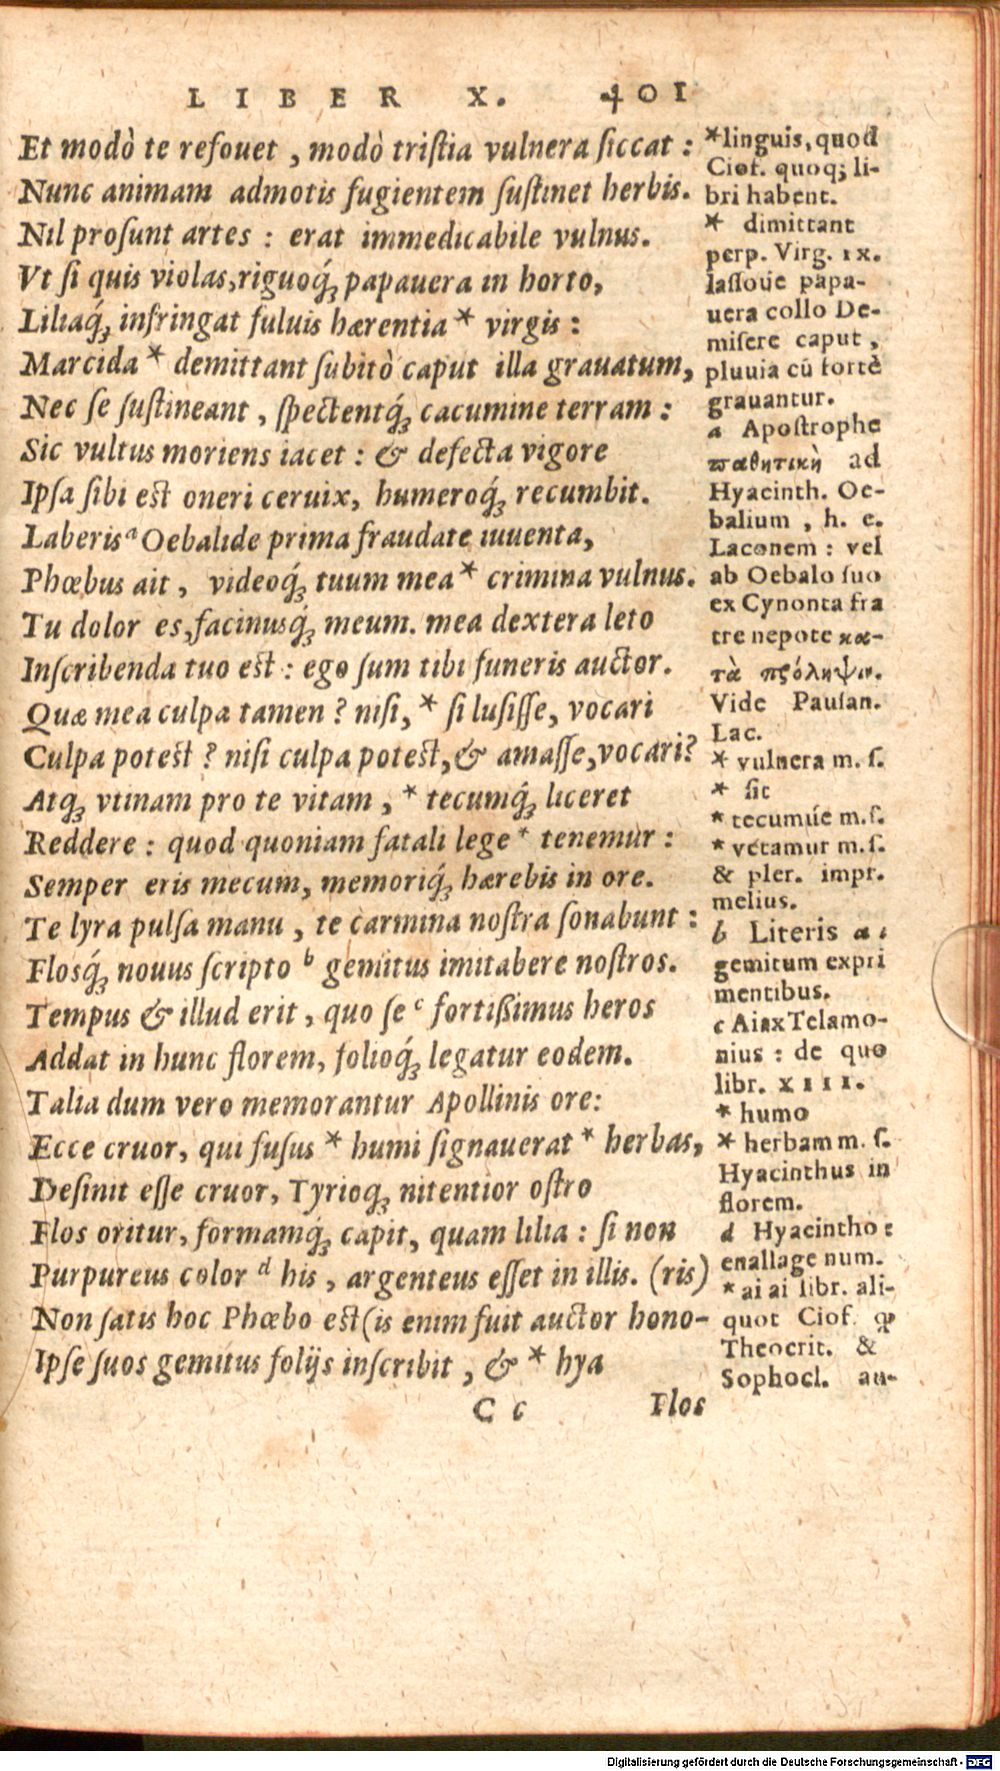 LIBER X. 401
Et modò te refouet, modò tristia vulnera siccat:
Nunc animam admotis fugientem sustinet herbis.
Nil prosunt artes: erat immedicabile vulnus.
Vt si quis violas, riguoq́; papauera in horto,
Liliaq́; infringat fuluis hærentia * virgis:
Marcida * demittant subitò caput illa grauatum,
Nec se sustineant, spectentq́; cacumine terram:
Sic vultus moriens iacet: & defecta vigore
Ipsa sibi est oneri ceruix, humeroq́; recumbit.
Laberis a Oebalide prima fraudate iuuenta,
Phœbus ait, videoq́; tuum mea * crimina vulnus.
Tu dolor es, facinusq́; meum. mea dextera leto
Inscribenda tuo est: ego sum tibi funeris auctor.
Quæ mea culpa tamen? nisi, * si lusisse, vocari
Culpa potest? nisi culpa potest, & amasse, vocari?
Atq; vtinam pro te vitam, * tecumq́; liceret
Reddere: quod quoniam fatali lege * tenemur:
Semper eris mecum, memoriq́; hærebis in ore.
Te lyra pulsa manu, te carmina nostra sonabunt:
Flosq́; nouus scripto b gemitus imitabere nostros.
Tempus & illud erit, quo se c fortißimus heros
Addat in hunc florem, folioq́; legatur eodem.
Talia dum vero memorantur Apollinis ore:
Ecce cruor, qui fusus * humi signauerat * herbas,
Desinit esse cruor, Tyrioq; nitentior ostro
Flos oritur, formamq́; capit, quam lilia: si non
Purpureus color d his, argenteus esset in illis. (ris)
Non satis hoc Phœbo est (is enim fuit auctor hono-
Ipse suos gemitus folijs inscribit, & * hya
C c Flos
*linguis, quod
Ciof. quoq; li-
bri habent.
* dimittant
perp. Virg. IX.
lassoue papa-
uera collo De-
misere caput,
pluuia cũ fortè
grauantur.
a Apostrophe
παθητικὴ ad
Hyacinth. Oe-
balium, h. e.
Laconem: vel
ab Oebalo suo
ex Cynonta fra
tre nepote κα-
τὰ πρόληψιν.
Vide Pausan.
Lac.
* vulnera m. s.
* sic
* tecumúe m. s.
* vetamur m. s.
& pler. impr.
melius.
b Literis a i
gemitum expri
mentibus.
c Aiax Telamo-
nius: de quo
libr. XIII.
* humo
* herbam m. s.
Hyacinthus in
florem.
d Hyacintho:
enallage num.
* ai ai libr. ali-
quot Ciof.
Theocrit. &
Sophocl. au-
Digitalisierung gefördert durch die Deutsche Forschungsgemeinschaft - DFG